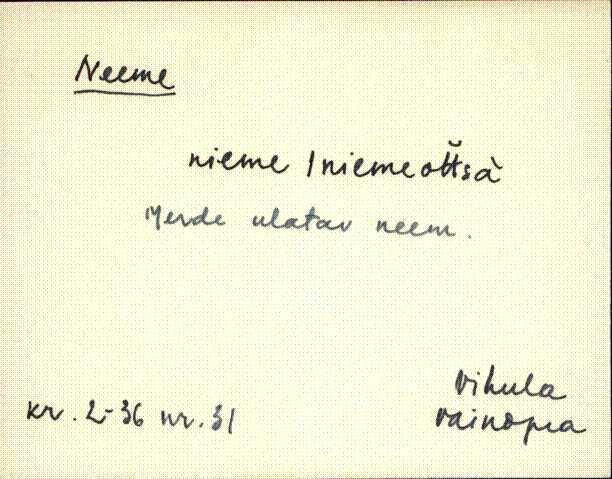 Neeme
nieme / niemeotťsà
Merde ulatav neem.
Vihula
kr. 2-36 nr. 31
Vainopea